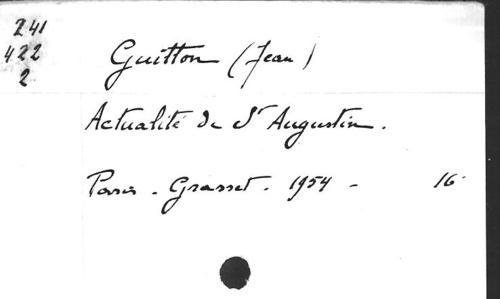 241
422
2
Guitton (Jean)
Actualité de St Augustin.
Paris - Grasset. 1954 - 16°